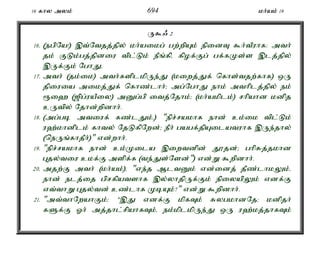 16 கால அலம் 694 மர்யம் 19
ருகூஃ 2
16. (நபியே!) இவ்வேதத்தில் மர்யமைப் பற்றியும் நினைவு கூர்வீராக: அவர் தம் குடும்பத்தினரை விட்டும் நீங்கி, கிழக்குப் பக்கமுள்ள இடத்தில் இருக்கும் போது;
17. அவர் (தம்மை) அவர்களிடமிருந்து (மறைத்துக் கொள்வதற்காக) ஒரு திரையை அமைத்துக் கொண்டார்; அப்போது நாம் அவரிடத்தில் நம் ரூஹை (ஜிப்ரயீலை) அனுப்பி வைத்தோம்: (மர்யமிடம்) சரியான மனித உருவில் தோன்றினார்.
18. (அப்படி அவரைக் கண்டதும்,) "நிச்சயமாக நான் உம்மை விட்டும் ரஹ்மானிடம் காவல் தேடுகிறேன்; நீர் பயபக்தியுடையவராக இருந்தால் (நெருங்காதீர்)" என்றார்.
19. "நிச்சயமாக நான் உம்முடைய இறைவனின் தூதன்; பரிசுத்தமான புதல்வரை உமக்கு அளிக்க (வந்துள்ளேன்") என்று கூறினார்.
20. அதற்கு அவர் (மர்யம்), "எந்த ஆடவனும் என்னைத் தீண்டாமலும், நான் நடத்தை பிசகியவளாக இல்லாதிருக்கும் நிலையிலும் எனக்கு எவ்வாறு புதல்வன் உண்டாக முடியும்?" என்று கூறினார்.
21. "அவ்வாறேயாகும்; "இது எனக்கு மிகவும் சுலபமானதே; மனிதர் களுக்கு ஓர் அத்தாட்சியாகவும், நம்மிடமிருந்து ஒரு ரஹ்மத்தாகவும்